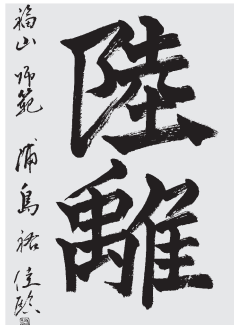 陸離
福山 師範 浦島裕佳臨